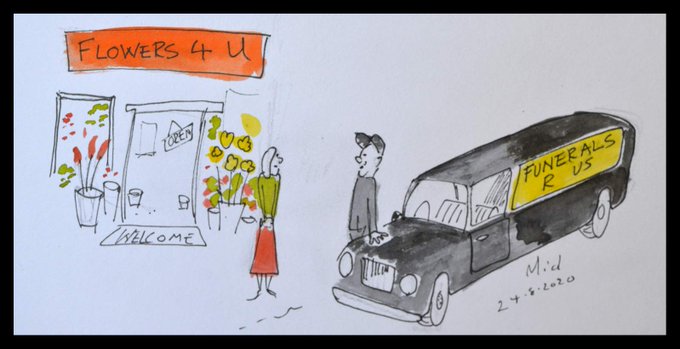 FLOWERS 4 U
OPEN
WELCOME
FUNERALS
R US
Mid
24-8-2020